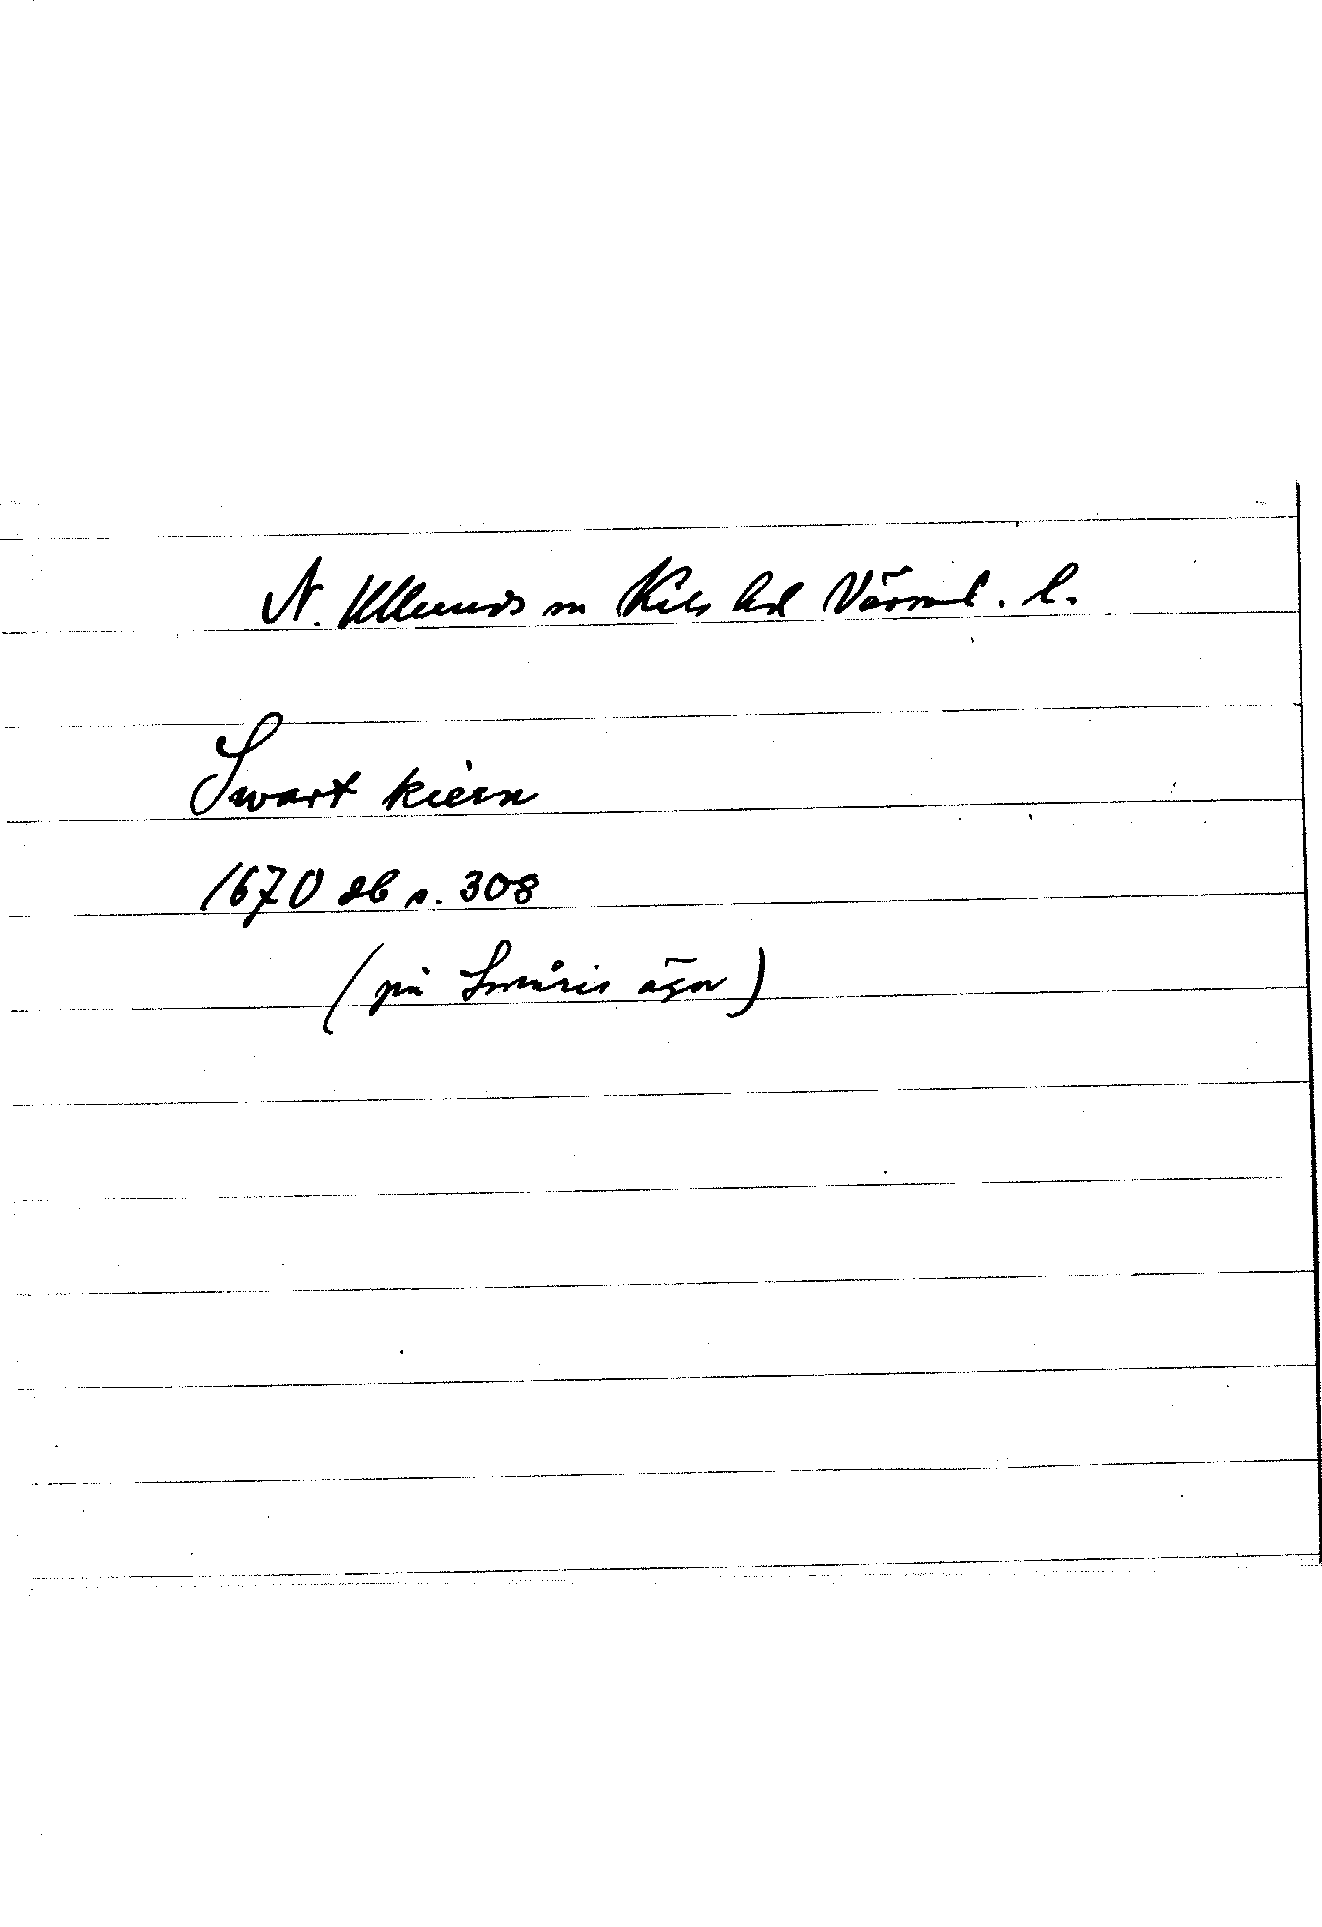 N. Ulleruds sn Kils hd Värml. l.
Swart kiern
1670 db s. 308
(på Småris ägor)